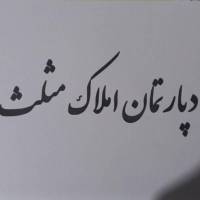 دپارتمان املاک مثلث